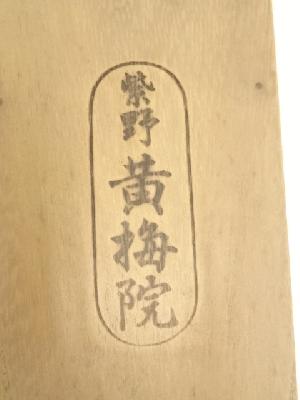 紫野黄梅院